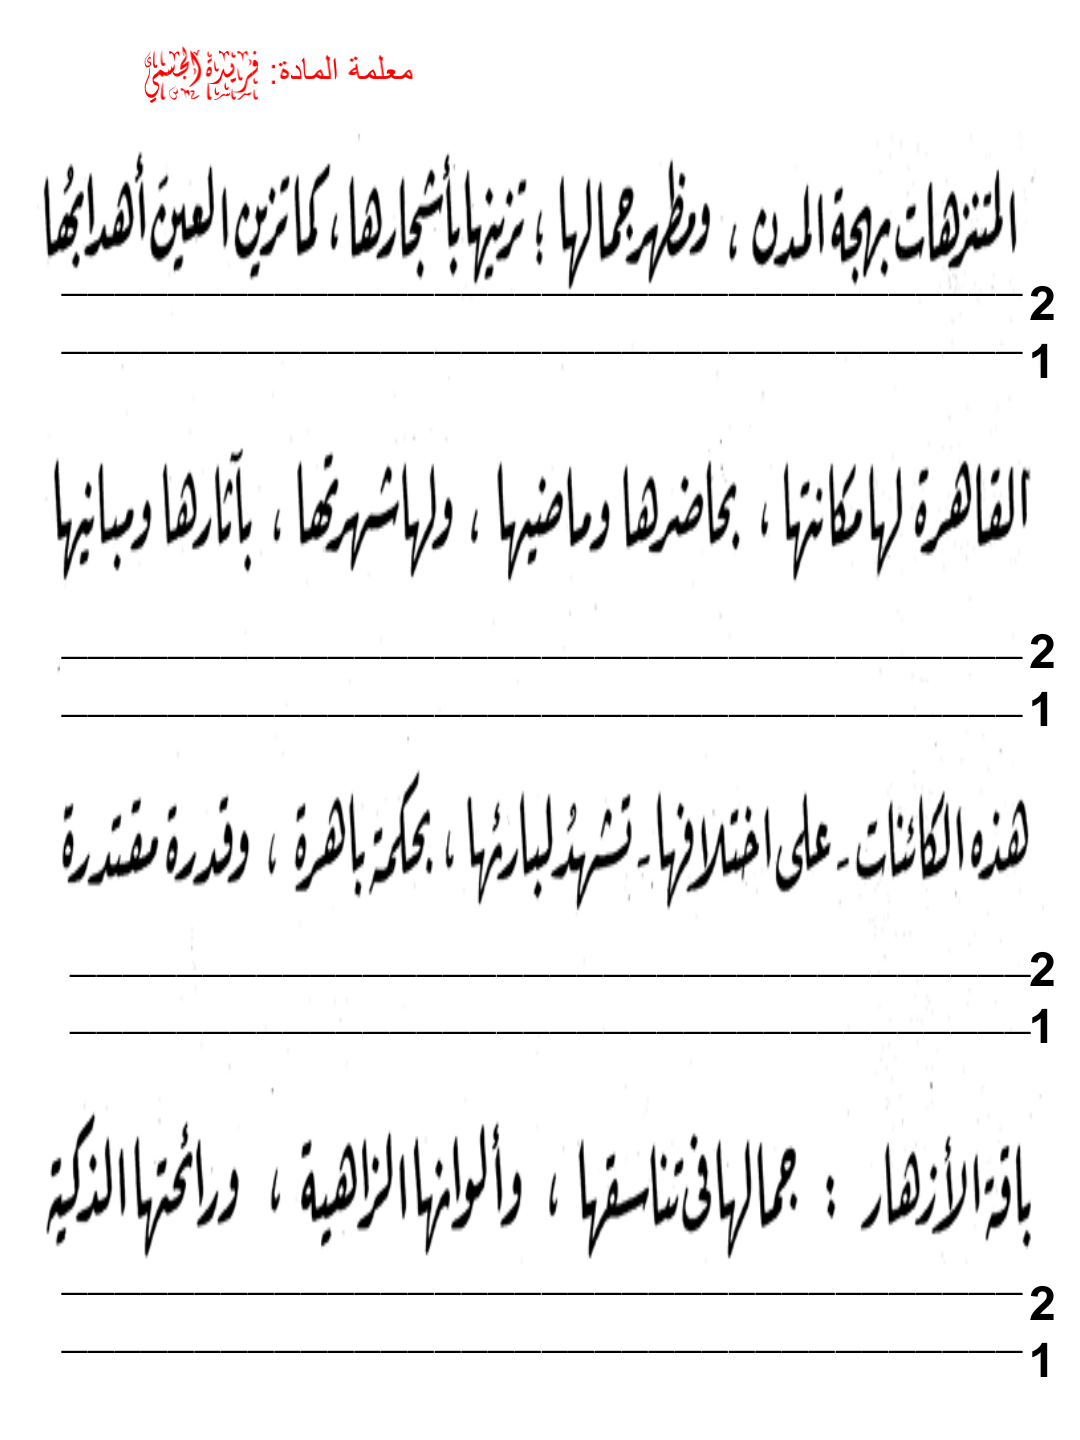 معلمة المادة: فريدة الجسمي
المتنزهات بهجة المدن ، ومظهر جمالها ؛ تزينها بأشجارها ، كما تزين العينَ أهدابُها
2
1
القاهرة لها مكانتها ، بحاضرها وماضيها ، ولها شهرتها ، بآثارها ومبانيها
2
1
هذه الكائنات - على اختلافها - تشهدُ لبارئها ، بحكمة باهرة ، وقدرة مقتدرة
2
1
باقة الأزهار : جمالها فى تناسقها ، وألوانها الزاهية ، ورائحتها الذكية
2
1